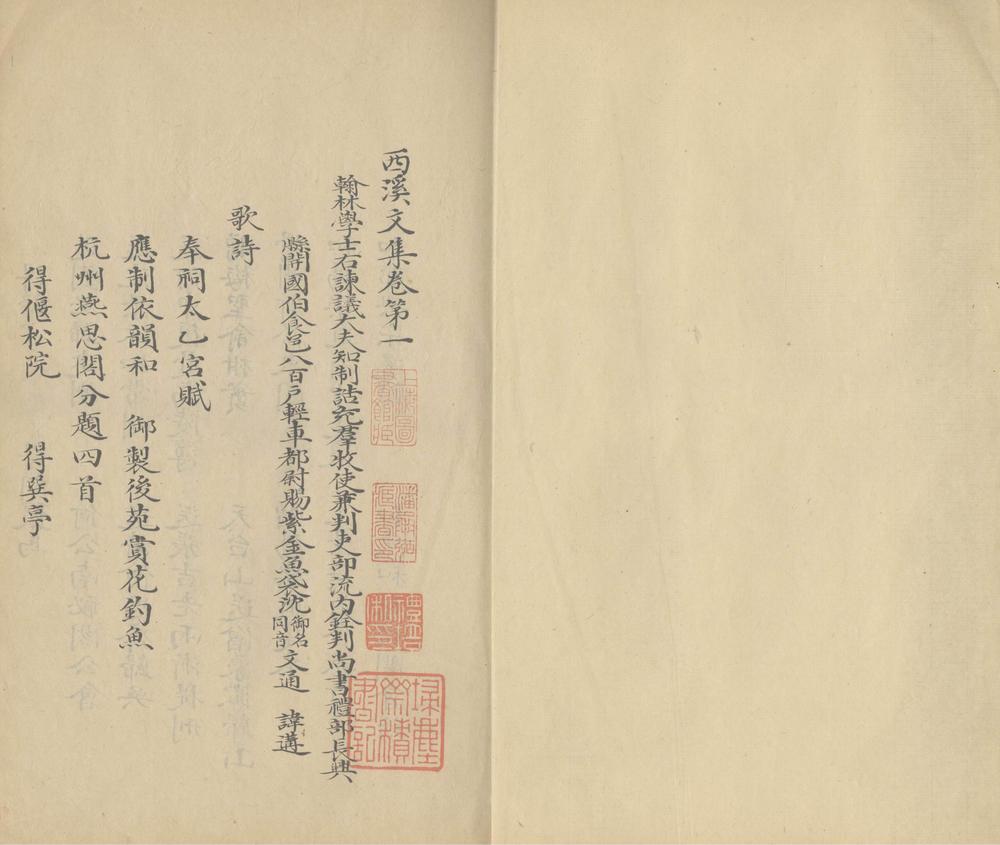 西溪文集卷第一
翰林學士右諫議大夫知制誥充羣牧使兼判吏部流內銓判尚書禮部長興
縣開國伯食邑八百戶輕車都尉賜紫金魚袋沈御名同音文通 諱遘
歌詩
奉祠太乙宮賦
應制依韻和 御製後苑賞花釣魚
杭州燕思閣分題四首
得偃松院 得巽亭
上海圖書館藏
掃塵齋積書記
禮培私印